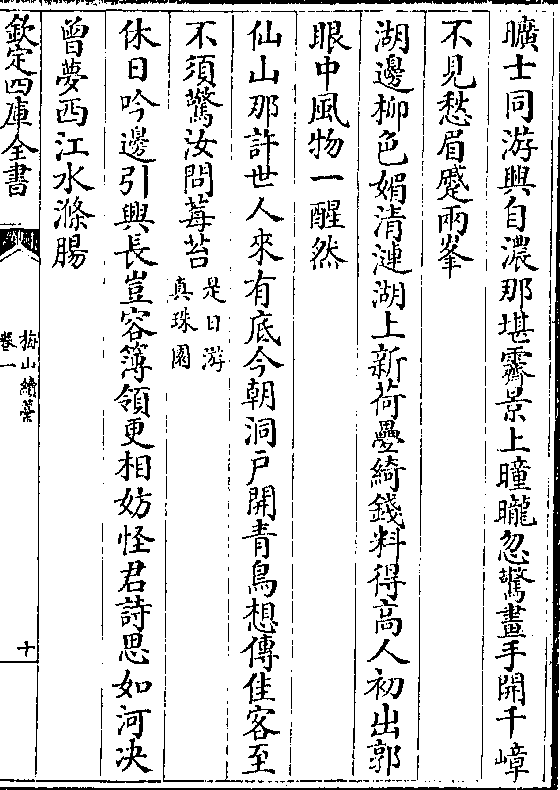 曠士同游興自濃那堪霽景上曈曨忽驚畫手開千嶂
不見愁眉蹙兩峯
湖邊柳色媚清漣湖上新荷疊綺錢料得高人初出郭
眼中風物一醒然
仙山那許世人來有底今朝洞戶開青鳥想傳佳客至
不須驚汝問莓苔是日游真珠園
休日吟邊引興長豈容簿領更相妨怪君詩思如河决
曾夢西江水滌腸
欽定四庫全書
梅山續藁
卷一
十